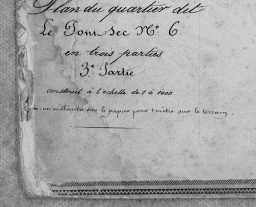 Plan du quartier dit
Le Pont Sec N° 6
en trois parties
3e Partie
construit à l'échelle de 1 à 1000
un millimètre sur le papier pour 1 mètre sur le terrain